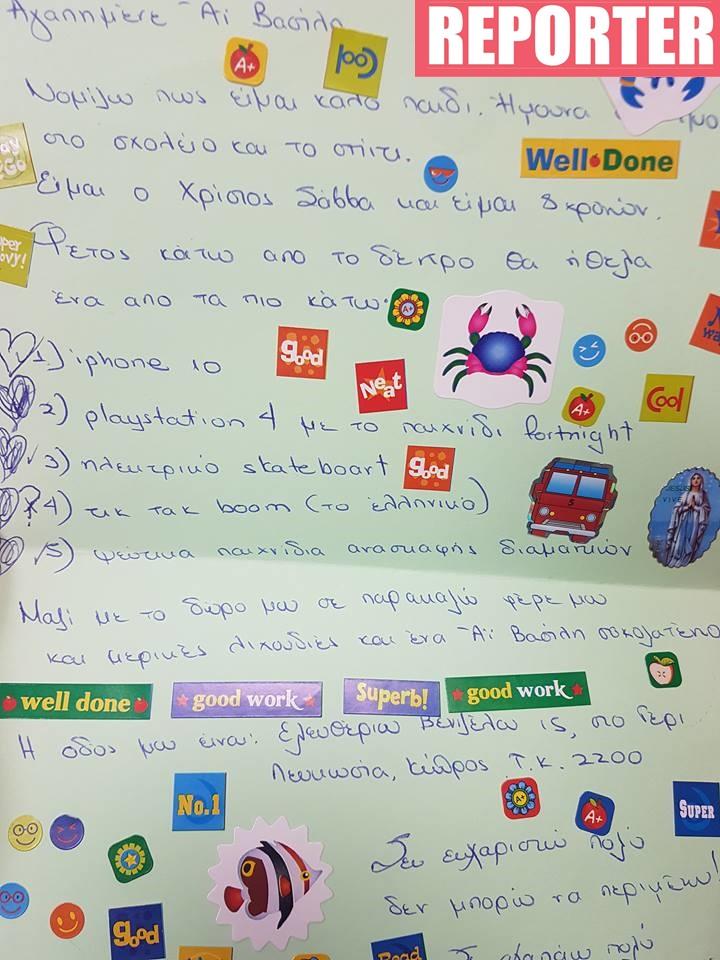 REPORTER
Αγαπημένε Άϊ Βασίλη
A+
Cool
Νομίζω πως είμαι καλό παιδί. Ήμουνα
στο σχολείο και το σπίτι.
Well Done
Είμαι ο Χρίστος Σάββα και είμαι 8 χρονών.
Φέτος κάτω από το δέντρο θα ήθελα
ένα από τα πιο κάτω:
A+
1) iphone 10
good
Neat
A+
Cool
2) playstation 4 με το παιχνίδι fortnight
3) ηλεκτρικό skateboart
good
4) τικ τακ boom (το ελληνικό)
5) ψεύτικα παιχνίδια ανασκαφής διαμαντιών
Μαζί με το δώρο μου σε παρακαλώ φέρε μου
και μερικές λιχουδιές και ένα Άϊ Βασίλη σοκολατένιο
well done
good work
Superb!
good work
Η οδός μου είναι: Ελευθερίου Βενιζέλου 15, στο Γέρι
Λευκωσία, Κύπρος Τ.Κ. 2200
No.1
A+
A+
SUPER
Σου ευχαριστώ πολύ
δεν μπορώ να περιμένω!
good
Σ αγαπάω πολύ